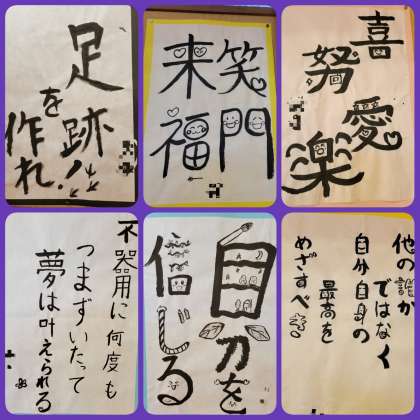 足跡
を作れ!
笑門
来福
喜
怒
愛
楽
不器用に何度も
つまずいたって
夢は叶えられる
自分を
信じる
他の誰か
ではなく
自分自身の
最高を
めざすべき